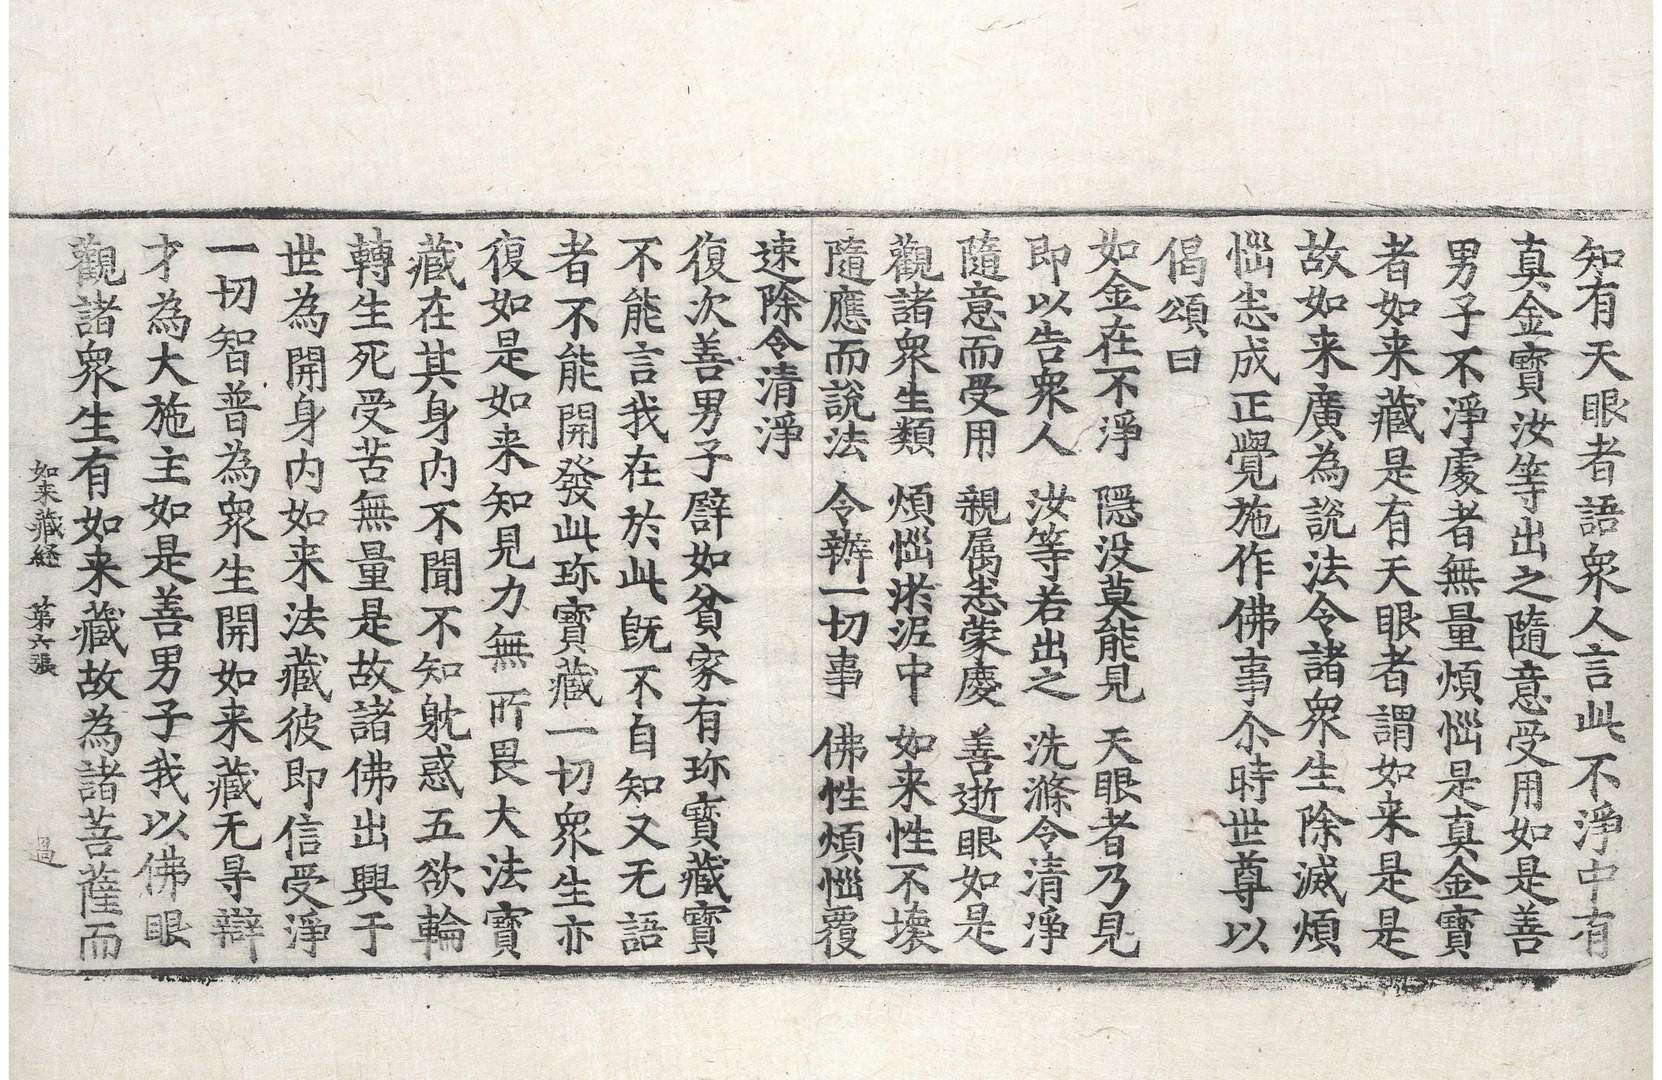 知有天眼者語衆人言此不淨中有
真金寶汝等出之隨意受用如是善
男子不淨處者無量煩惱是真金寶
者如来藏是有天眼者謂如来是是
故如来廣為說法令諸衆生除滅煩
惱悉成正覺施作佛事尒時世尊以
偈頌曰
如金在不淨　隱没莫能見　天眼者乃見
即以告衆人　汝等若出之　洗滌令清淨
隨意而受用　親属悉蒙慶　善逝眼如是
觀諸衆生類　煩惱淤泥中　如来性不壞
隨應而說法　令辦一切事　佛性煩惱覆
速除令清淨
復次善男子譬如貧家有珎寶藏寶
不能言我在於此既不自知又无語
者不能開發此珎寶藏一切衆生亦
復如是如来知見力無所畏大法寶
藏在其身内不聞不知躭惑五欲輪
轉生死受苦無量是故諸佛出興于
世為開身内如来法藏彼即信受淨
一切智普為衆生開如来藏无㝵辯
才為大施主如是善男子我以佛眼
觀諸衆生有如来藏故為諸菩薩而
如来藏経　第六張　過